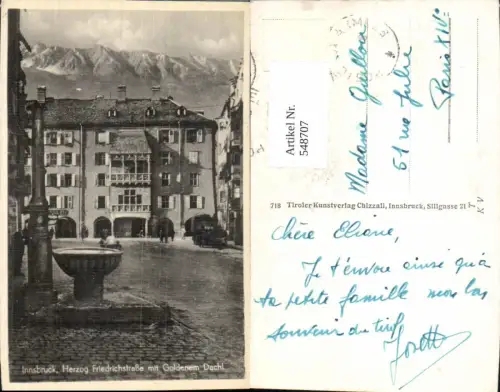 Innsbruck, Herzog Friedrichstraße mit Goldenem Dachl
Artikel Nr.
548707
Madame Guillou
61 rue Julie
Paris XIVe
718 Tiroler Kunstverlag Chizzali, Innsbruck, Sillgasse 21
T
K V
Chère Eliane,
Je t'envoie ainsi qu'à
ta petite famille mon bon
souvenir du tirol
Josette